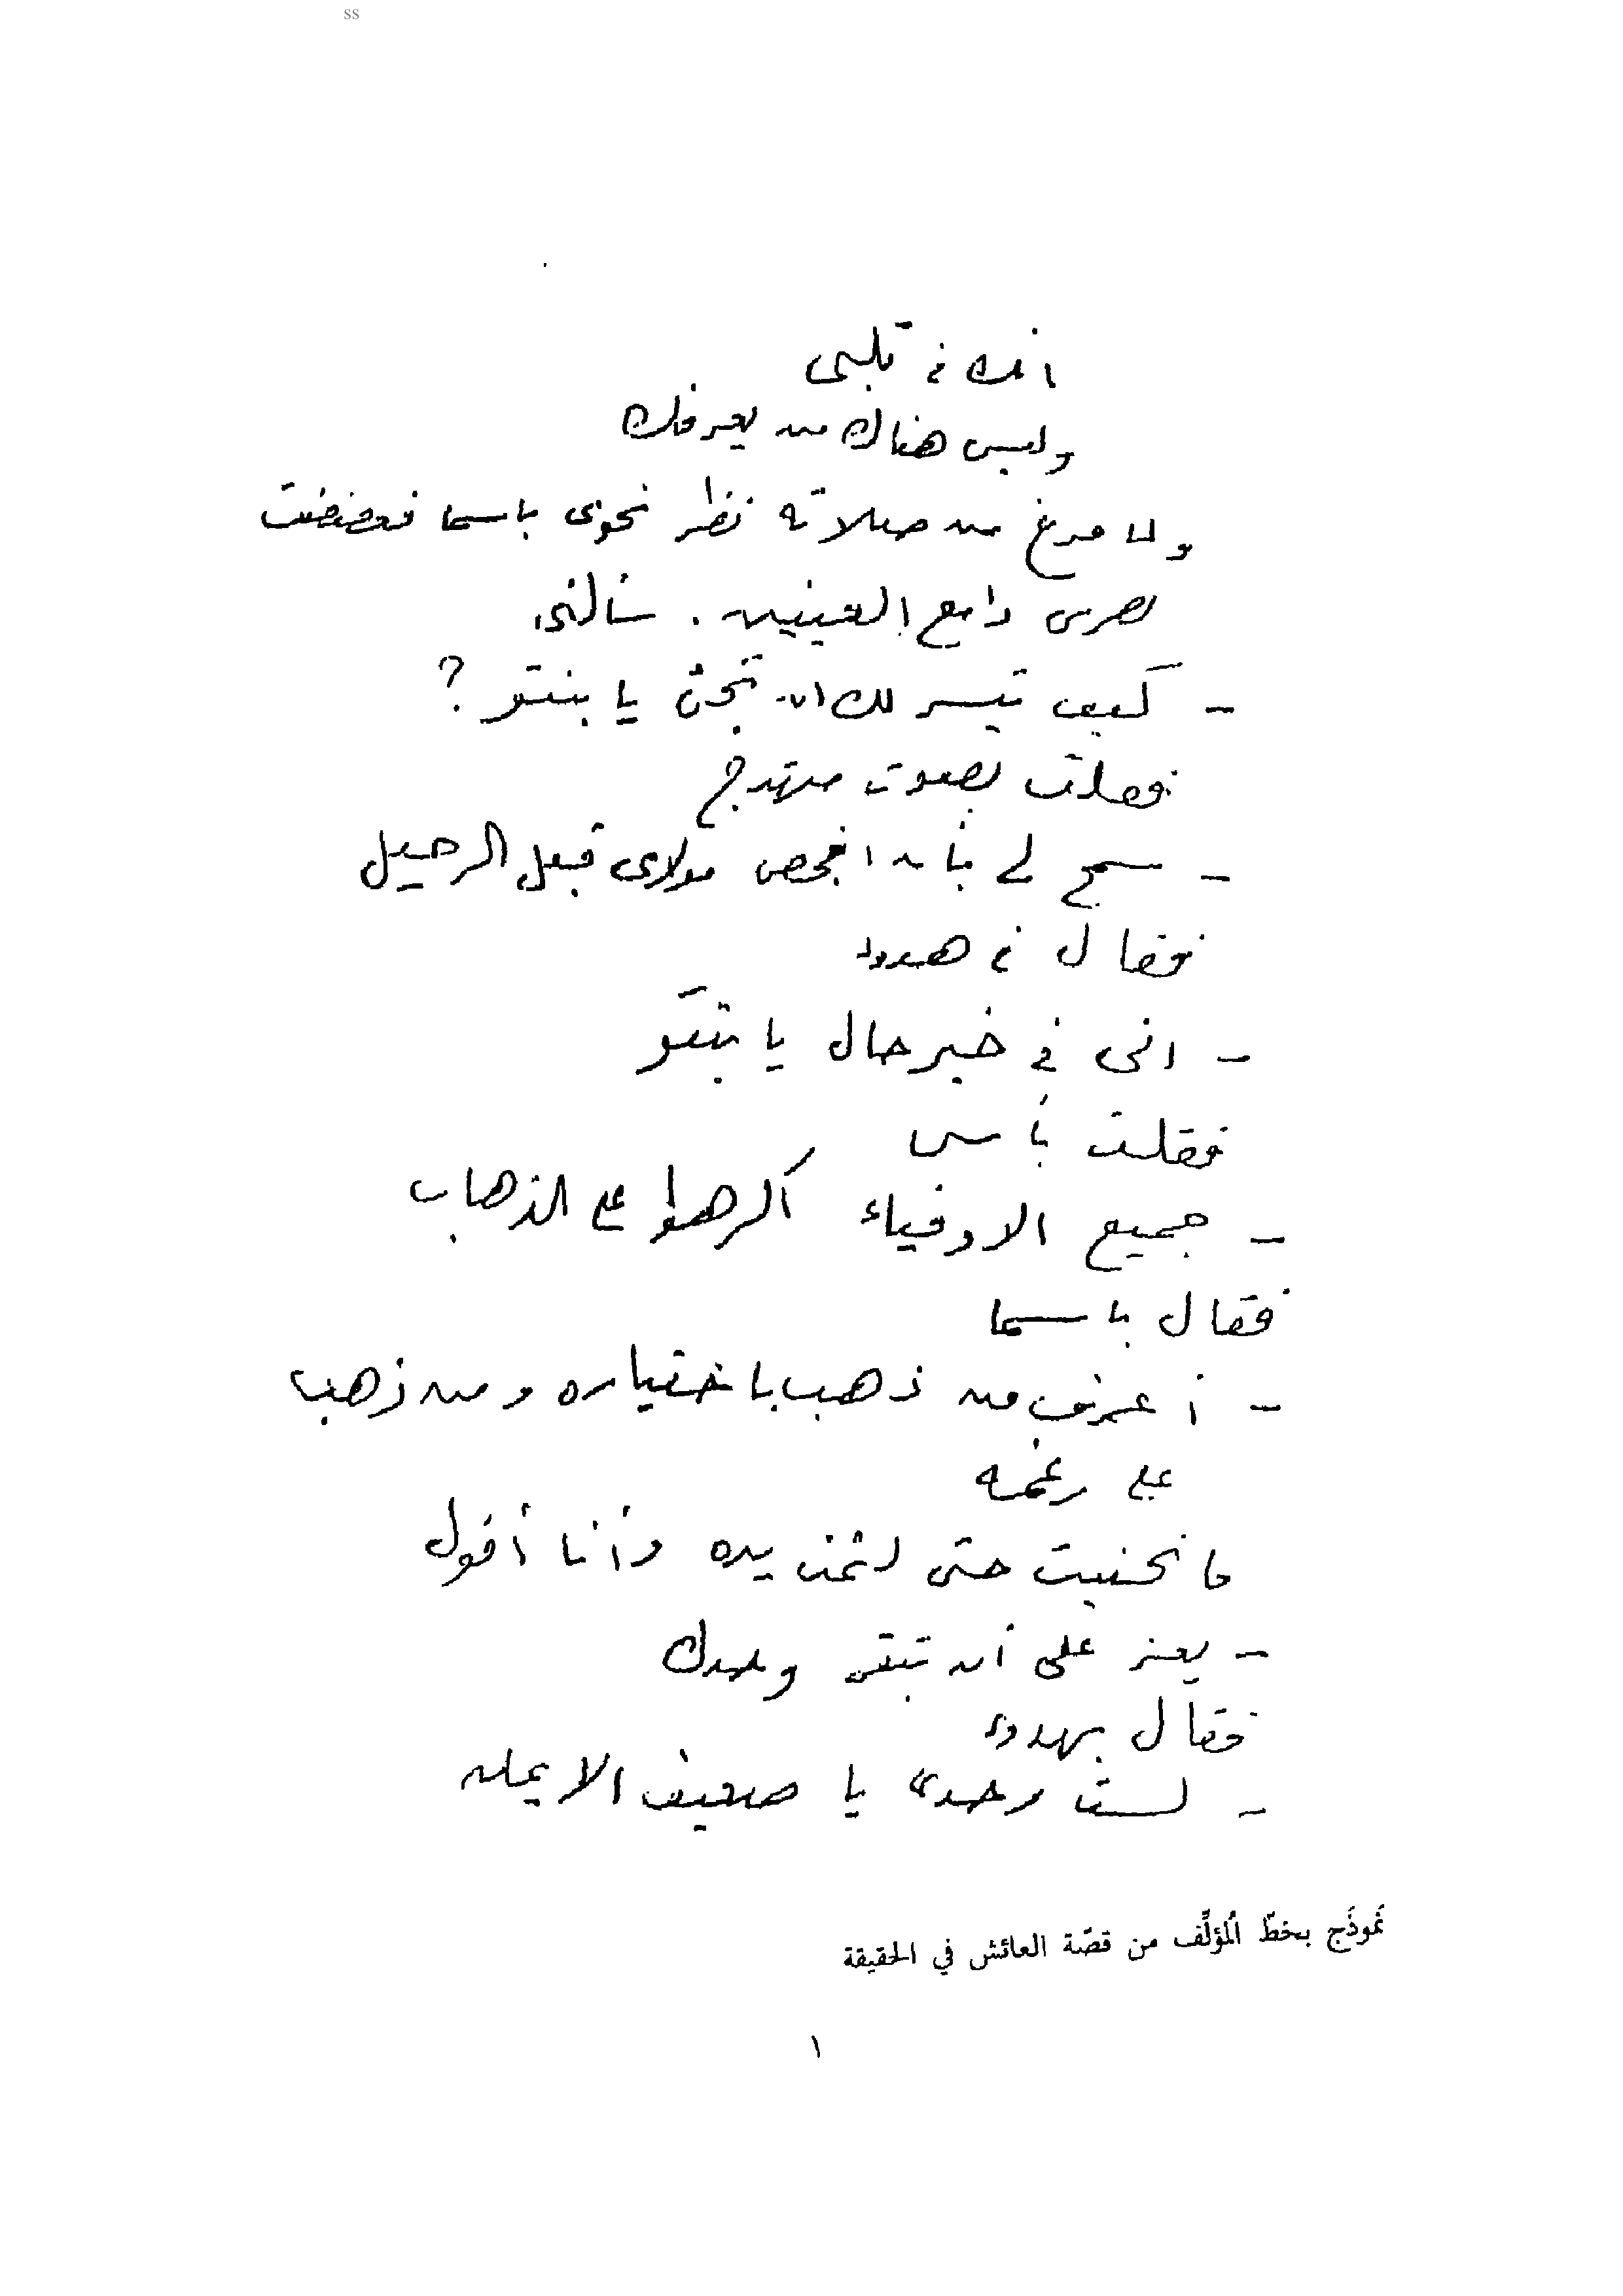 ss
انك في قلبى
وليس هناك من يعرفك
ولما فرغ من صلاته نظر نحوى باسما فغضضت
بصرى دامع العينين. سألنى
- كيف تيسر لك ان تجئ يا بنتو ?
فقلت بصوت متهدج
- سمح لي بأن افحص مولاى قبل الرحيل
فقال في هدوء
- انى في خير حال يا بنتو
فقلت بأسى
- جميع الاوفياء اكرهوا على الذهاب
فقال باسما
- أعرف من ذهب باختياره ومن ذهب
على رغمه
فانحنيت حتى لثمت يده وأنا أقول
- يعز على أن تبقى وحدك
فقال بهدوء
- لست وحدى يا ضعيف الايمان
نَموذَج بخطّ المُؤلِّف من قصّة العائش في الحقيقة
١